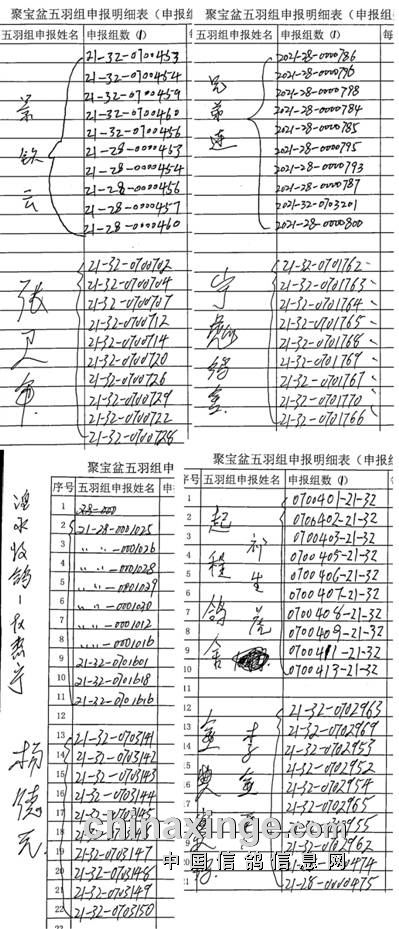 聚宝盆五羽组申报明细表（申报组
五羽组申报姓名 申报组数（1） 每
21-32-0700453
21-32-0700454
21-32-0700459
21-32-0700460
21-32-0700456
21-28-0000453
21-28-0000454
21-28-0000456
21-28-0000457
21-28-0000460
21-32-0700702
21-32-0700704
21-32-0700707
21-32-0700712
21-32-0700714
21-32-0700720
21-32-0700726
21-32-0700729
21-32-0700722
21-32-0700728
张卫军
聚宝盆五羽组申报明细表（申报组
五羽组申报姓名 申报组数（1） 每
兄弟连
2021-28-0000786
2021-28-0000796
2021-28-0000798
2021-28-0000784
2021-28-0000785
2021-28-0000795
2021-28-0000793
2021-28-0000787
2021-32-0703201
2021-28-0000800
21-32-0701762
21-32-0701763
21-32-0701764
21-32-0701765
21-32-0701768
21-32-0701769
21-32-0701767
21-32-0701770
21-32-0701766
聚宝盆五羽组申
序号 五羽组申报姓名 申
1
2 21-28-0001025
3 〃 〃-0001026
4 〃 〃-0001028
5 〃 〃-0001029
6 〃 〃-0001030
7 〃 〃-0001012
8 〃 〃-0001016
9 21-32-0701601
10 21-32-0701618
11 21-32-0701616
12
13 21-32-0703141
14 21-32-0703142
15 21-32-0703143
16 21-32-0703144
17 21-32-0703145
18
19 21-32-0703147
20 21-32-0703148
21 21-32-0703149
22 21-32-0703150
杨德元
聚宝盆五羽组申报明细表（申报组
序号 五羽组申报姓名 申报组数（1）
起程鸽舍
1 0700401-21-32
2 0700402-21-32
3 0700403-21-32
4 0700405-21-32
5 0700406-21-32
6 0700407-21-32
7 0700408-21-32
8 0700409-21-32
9 0700411-21-32
10 0700413-21-32
11
12 21-32-0702963
13 21-32-0702969
14 21-32-0702953
15 21-32-0702952
16 21-32-0702954
17 21-32-0702965
21-32-0702962
21-28-0000475
chinaxinge.com
中国信鸽信息网